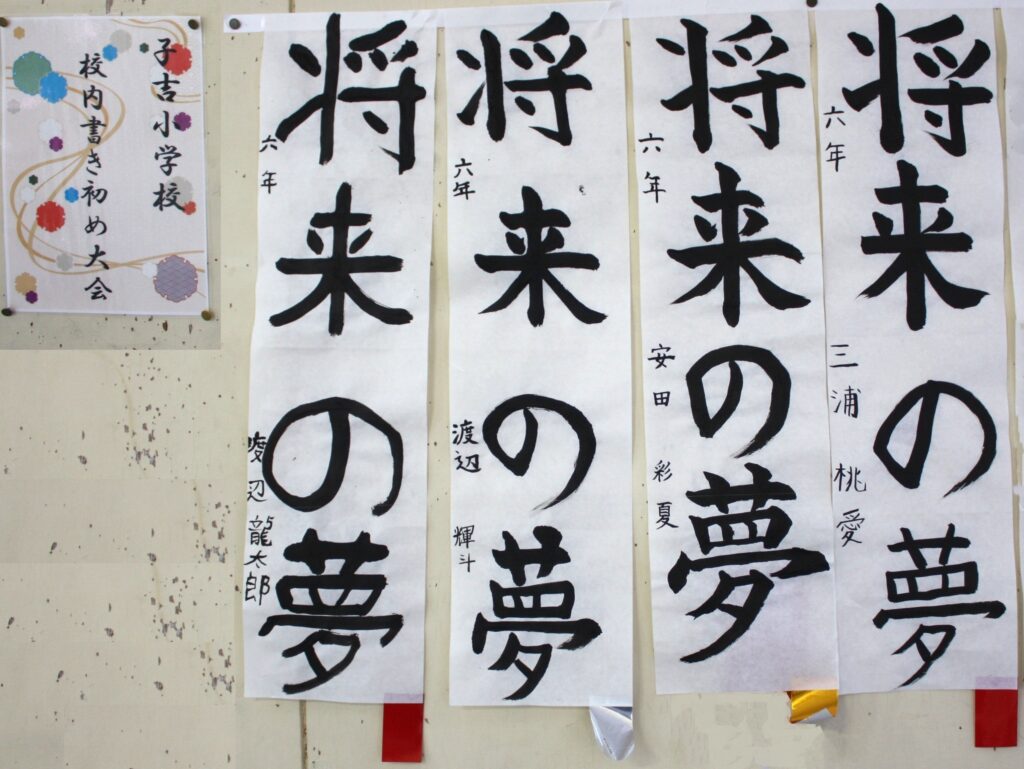 子吉小学校
校内書き初め大会
将来の夢
六年 三浦 桃愛
将来の夢
六年 安田 彩夏
将来の夢
六年 渡辺 輝斗
将来の夢
六年 辺 龍太郎